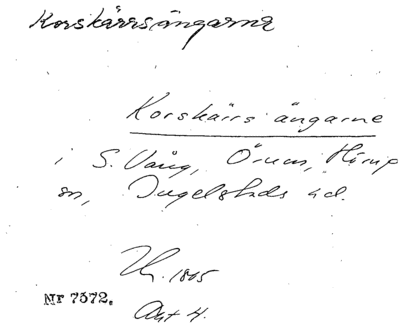 Korskärrsängarna
Korskärrs ängarne
i S. Vång, Örum, Hörup
sn, Ingelstads hd.
1805
Nr 7372.
Akt 4.